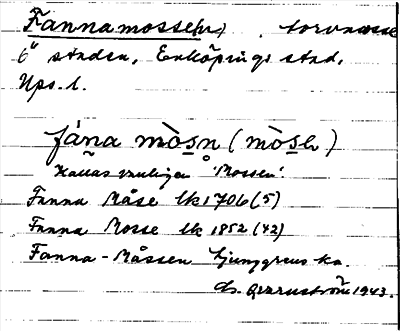 Fännamossen, torvmosse
6" staden, Enköpings stad,
Ups. l.
fána mòsn (mòsn)
Kallas vanligen "Mossen".
Fanna Måse lk 1706 (5)
Fanna Mosse lk 1852 (42)
Fanna-Måssen Ljunggrens ka.
Qvarnström 1943.